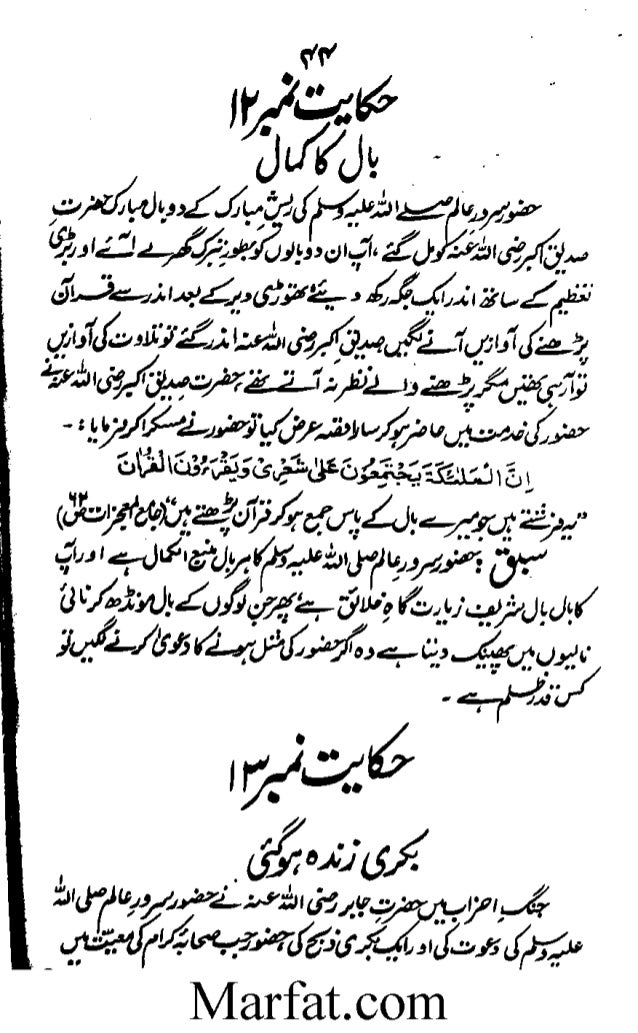 ۴۴
حکایت نمبر ۱۲
بال کا کمال
حضور سرورِ عالم صلے اللہ علیہ وسلم کی ریشِ مبارک کے دو بال مبارک حضرت
صدیق اکبر رضی اللہ عنہ کو مل گئے، آپ ان دو بالوں کو بطورِ تبرک گھر لے آئے اور بڑی
تعظیم کے ساتھ اندر ایک جگہ رکھ دیئے تھوڑی دیر کے بعد اندر سے قرآن
پڑھنے کی آوازیں آنے لگیں صدیق اکبر رضی اللہ عنہ اندر گئے تو تلاوت کی آوازیں
تو آرہی تھیں مگر پڑھنے والے نظر نہ آتے تھے، حضرت صدیق اکبر رضی اللہ عنہ نے
حضور کی خدمت میں حاضر ہو کر سارا قصہ عرض کیا تو حضور نے مسکرا کر فرمایا:۔
اِنَّ الْمَلٰئِكَةَ يَجْتَمِعُوْنَ عَلٰى شَعْرِىْ وَيَقْرَءُوْنَ الْقُرْاٰنَ
”یہ فرشتے ہیں جو میرے بال کے پاس جمع ہو کر قرآن پڑھتے ہیں“ (جامع المعجزات ص ۶۲)
سبق: حضور سرورِ عالم صلی اللہ علیہ وسلم کا ہر بال منبع الکمال ہے اور آپ
کا بال بال شریف زیارت گاہِ خلائق ہے، پھر جن لوگوں کے بال مونڈھ کر نائی
نالیوں میں پھینک دیتا ہے وہ اگر حضور کی مثل ہونے کا دعویٰ کرنے لگیں تو
کس قدر ظلم ہے۔
حکایت نمبر ۱۳
بکری زندہ ہوگئی
جنگِ احزاب میں حضرت جابر رضی اللہ عنہ نے حضور سرورِ عالم صلی اللہ
علیہ وسلم کی دعوت کی اور ایک بکری ذبح کی، حضور جب صحابہ کرام کی معیّت میں
Marfat.com